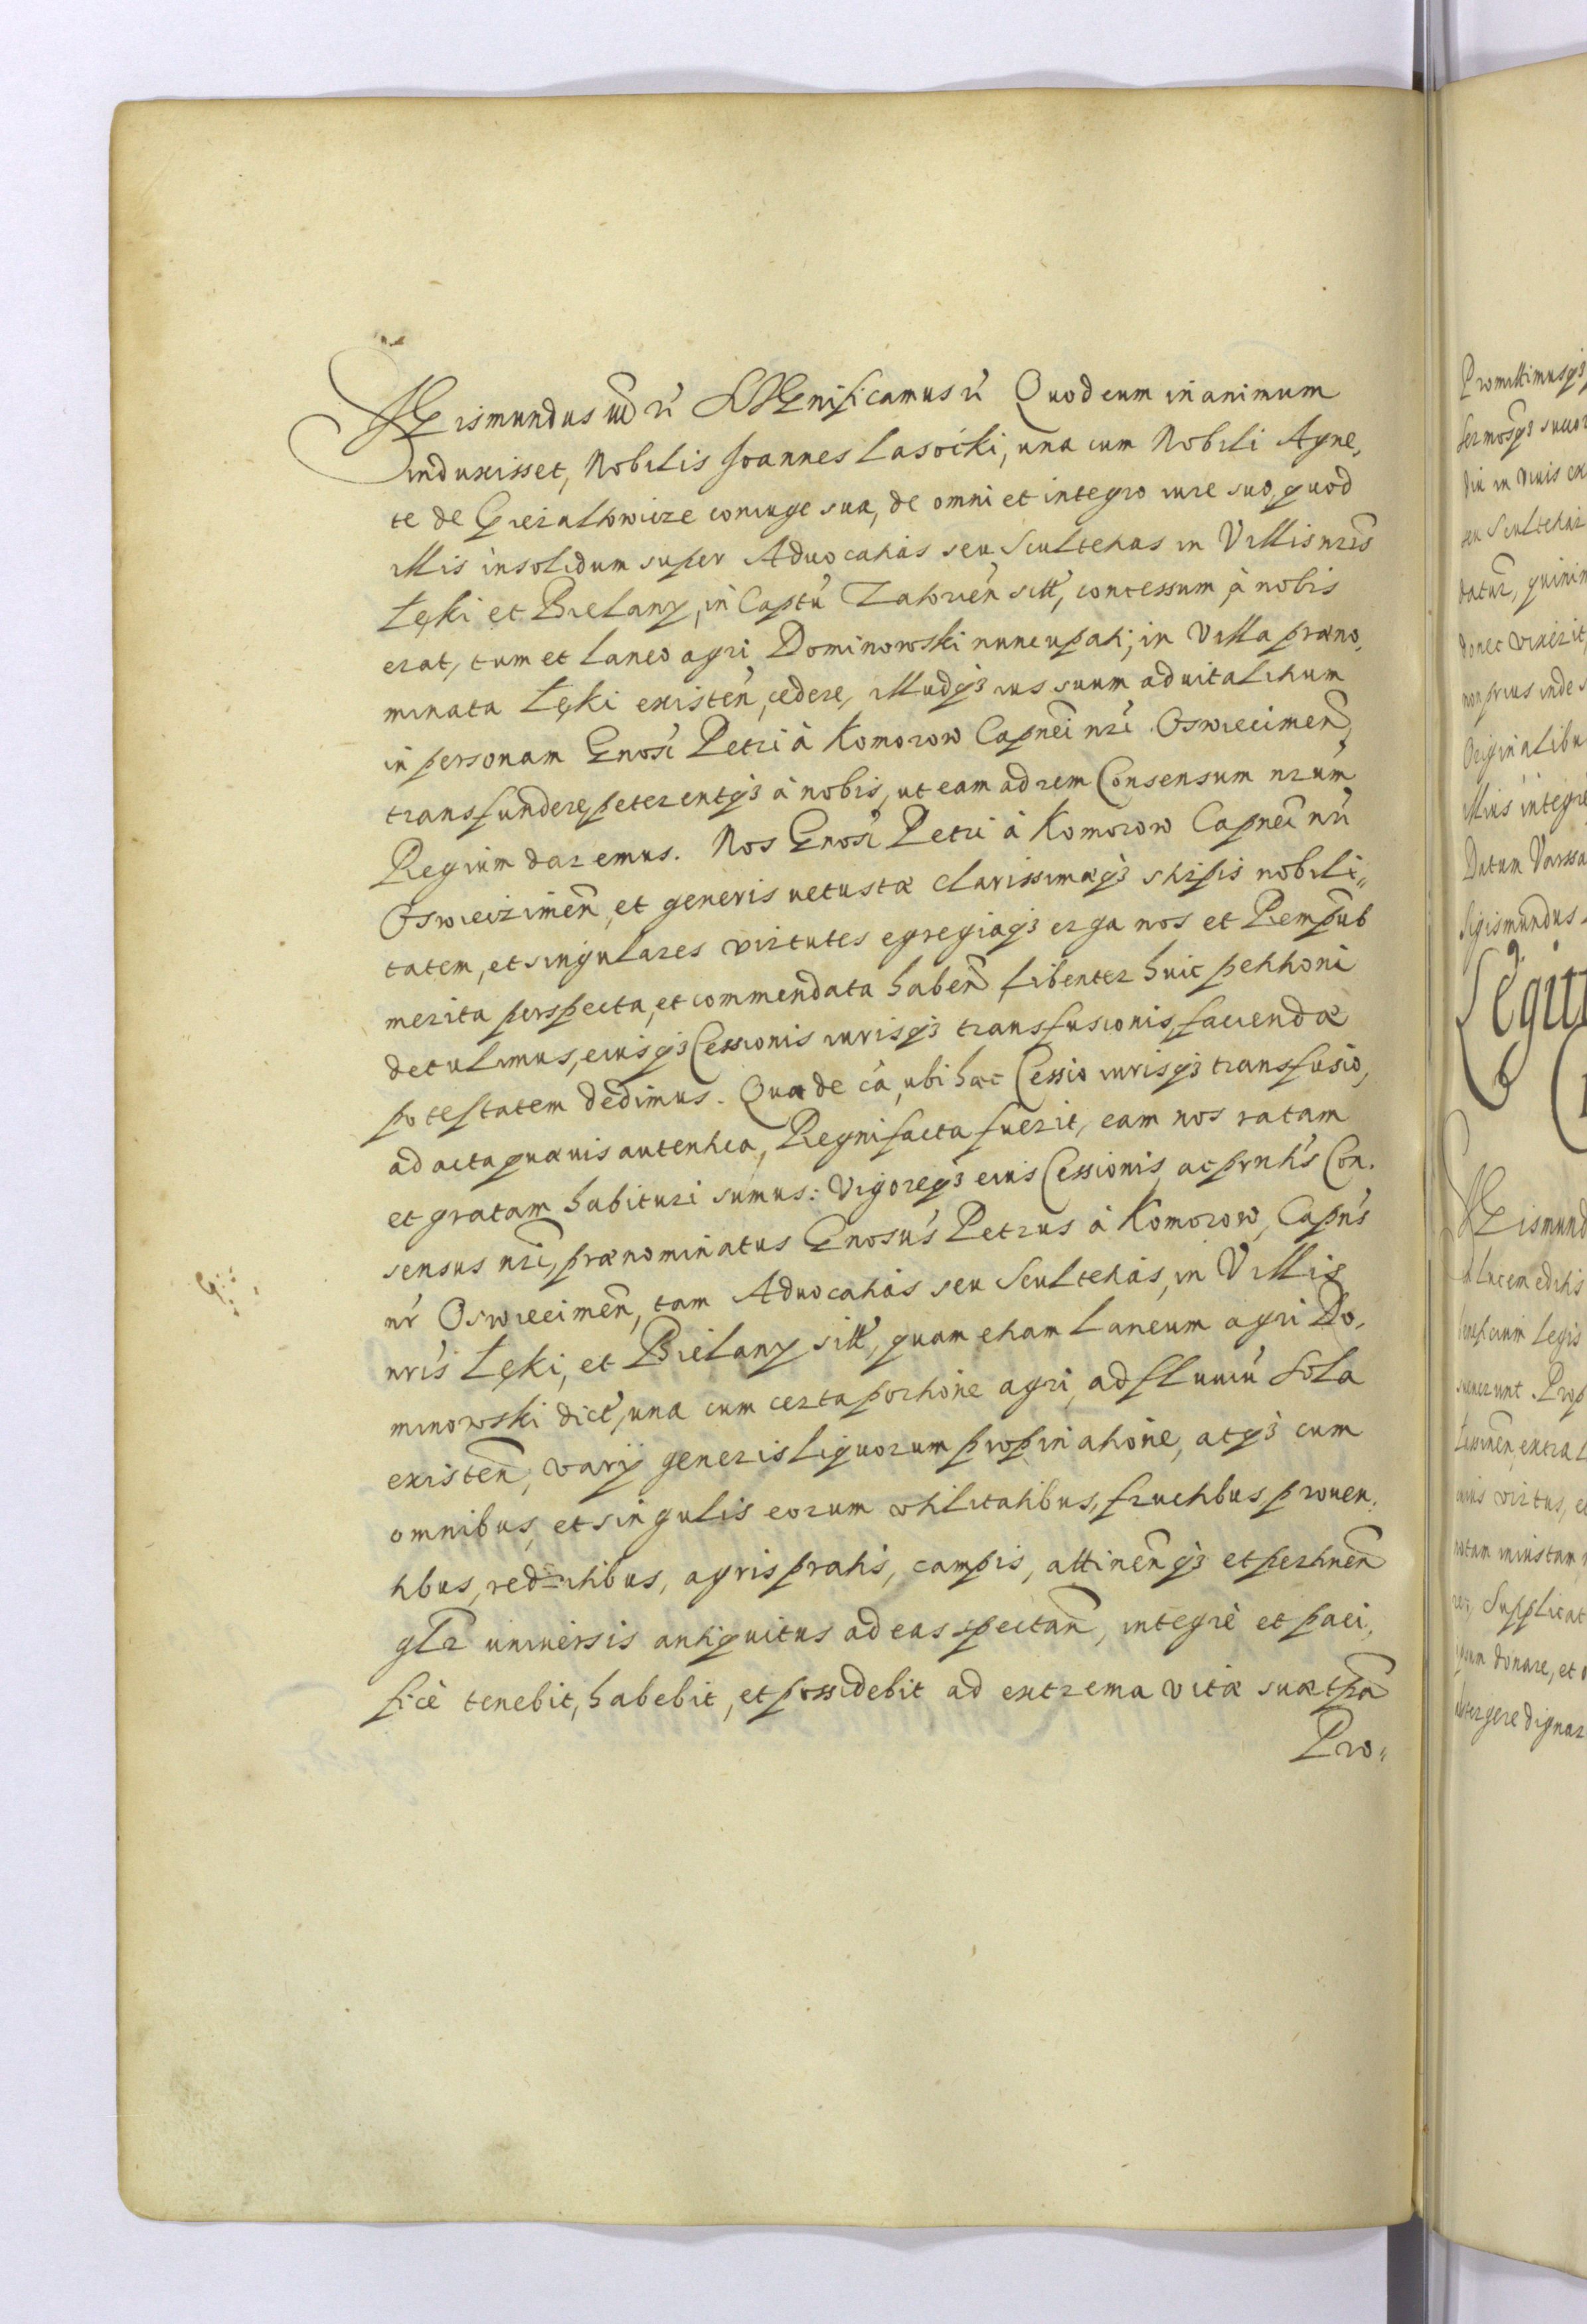 Sigismundus III Dei Significamus etc Quod cum in animum
induxisset, Nobilis Joannes Lasocki, una cum Nobili Agne,
te de Gieraltowicze coniuge sua, de omni et integro iure suo, quod
illis insolidum super Advocatias seu Scultetias in Villis nris
Łęki et Bielany, in Captu Zatorien sitt, concessum à nobis
erat, tum et Laneo agri Dominowski nuncupati, in Villa præno,
minata Łęki existen, cedere, illudq3 ius suum aduitalitium
in personam Gnosi Petri à Komorow Capnei nri Oswiecimen,
transfundere, peterentq3 à nobis, ut eam ad rem Consensum nrum
Regium daremus. Nos Gnosi Petri à Komorow Capnei nri
Oswieczimen, et generis uetustæ clarissimæq3 stirpis nobili„
tatem, et singulares virtutes egregiaq3 erga nos et Rempub
merita perspecta, et commendata haben, Libenter huic petitioni
detulimus, eiusq3 Cessionis iurisq3 transfusionis, faciendæ
potestatem dedimus. Qua de ca, ubi hæc Cessio iurisq3 transfusio,
ad acta quæuis autentica, Regni facta fuerit, eam nos ratam
et gratam habituri sumus: Vigoreq3 eius Cessionis, ac prntis Con.
sensus nri, prænominatus Gnosus Petrus à Komorow, Capns
nr Oswiecimen, tam Aduocatias seu Scultetias, in Villis
nris Łęki, et Bielany sitt, quam etiam Laneum agri Do,
minowski dict, una cum certa portione agri, ad fluuiu Sola
existen, varij generis liquorum propinatione, atq3 cum
omnibus, et singulis eorum vtilitatibus, fructibus prouen,
tibus, redditibus, agris pratis, campis, attinenq3 et pertinen
glr uniuersis antiquitus ad eas spectan, integrè et paci,
ficè tenebit, habebit, et possidebit ad extrema vitæ suæ tpa
Pro„